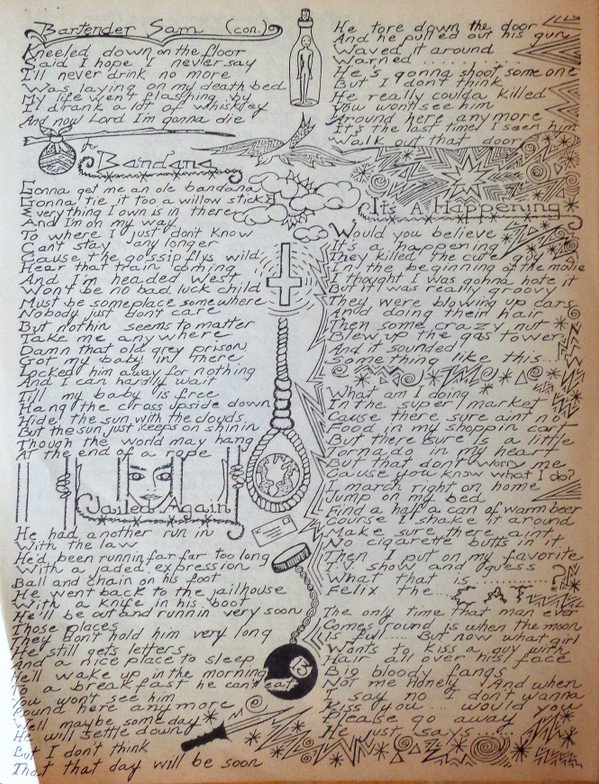 Bartender Sam (con.)
Kneeled down on the floor
Said I hope I never say
I'll never drink no more
Was laying on my death bed
My life went flashing by
I drank a lot of whiskey
And now Lord I'm gonna die
Bandana
Gonna get me an ole bandana
Gonna tie it too a willow stick
Everything I own is in there
And I'm on my way
To where I just don't know
Can't stay any longer
Cause the gossip flys wild
Hear that train coming
And I'm headed west
Won't be no bad luck child
Must be someplace somewhere
Nobody just don't care
But nothin seems to matter
Take me anywhere
Damn that old grey prison
Got my baby in there
Locked him away for nothing
And I can hardly wait
Till my baby is free
Hang the cross upside down
Hide the sun with the clouds
But the sun just keeps on shinin
Though the world may hang
At the end of a rope
Jailed Again
He had another run in
With the law
He'd been runnin far far too long
With a jaded expression
Ball and chain on his foot
He went back to the jailhouse
With a knife in his boot
He'll be out and runnin very soon
Those places
They don't hold him very long
He still gets letters
And a nice place to sleep
He'll wake up in the morning
To a breakfast he can't eat
You won't see him
Round here any more
Well maybe some day
He will settle down
But I don't think
That that day will be soon
13
He tore down the door
And he pulled out his gun
Waved it around
Warned ..........
He's gonna shoot some one
But I don't think
He really coulda killed
You won't see him
Around here any more
It's the last time I seen him
Walk out that door
It's A Happening
Would you believe
It's a happening
They killed the cute guy
In the beginning of the movie
I thought I was gonna hate it
But it was really groovy
They were blowing up cars
And doing their hair
Then some crazy nut
Blew up the gas tower
And it sounded
Something like this...
What am I doing
In the super market
Cause there sure aint no
Food in my shoppin cart
But there sure is a little
Tornado in my heart
But that don't worry me
Cause you know what I do?
I march right on home
Jump on my bed
Find a half a can of warm beer
Course I shake it around
Make sure there aint
No cigarette butts in it
Then I put on my favorite
T.V. show and guess
What that is ..........?
Felix the ...
The only time that man ever
Comes round is when the moon
Is full.... But now what girl
Wants to kiss a guy with
Hair all over his face
Big bloody fangs
Not me Honey. And when
I say no I don't wanna
Kiss you ... would you
Please go away
He just says.....